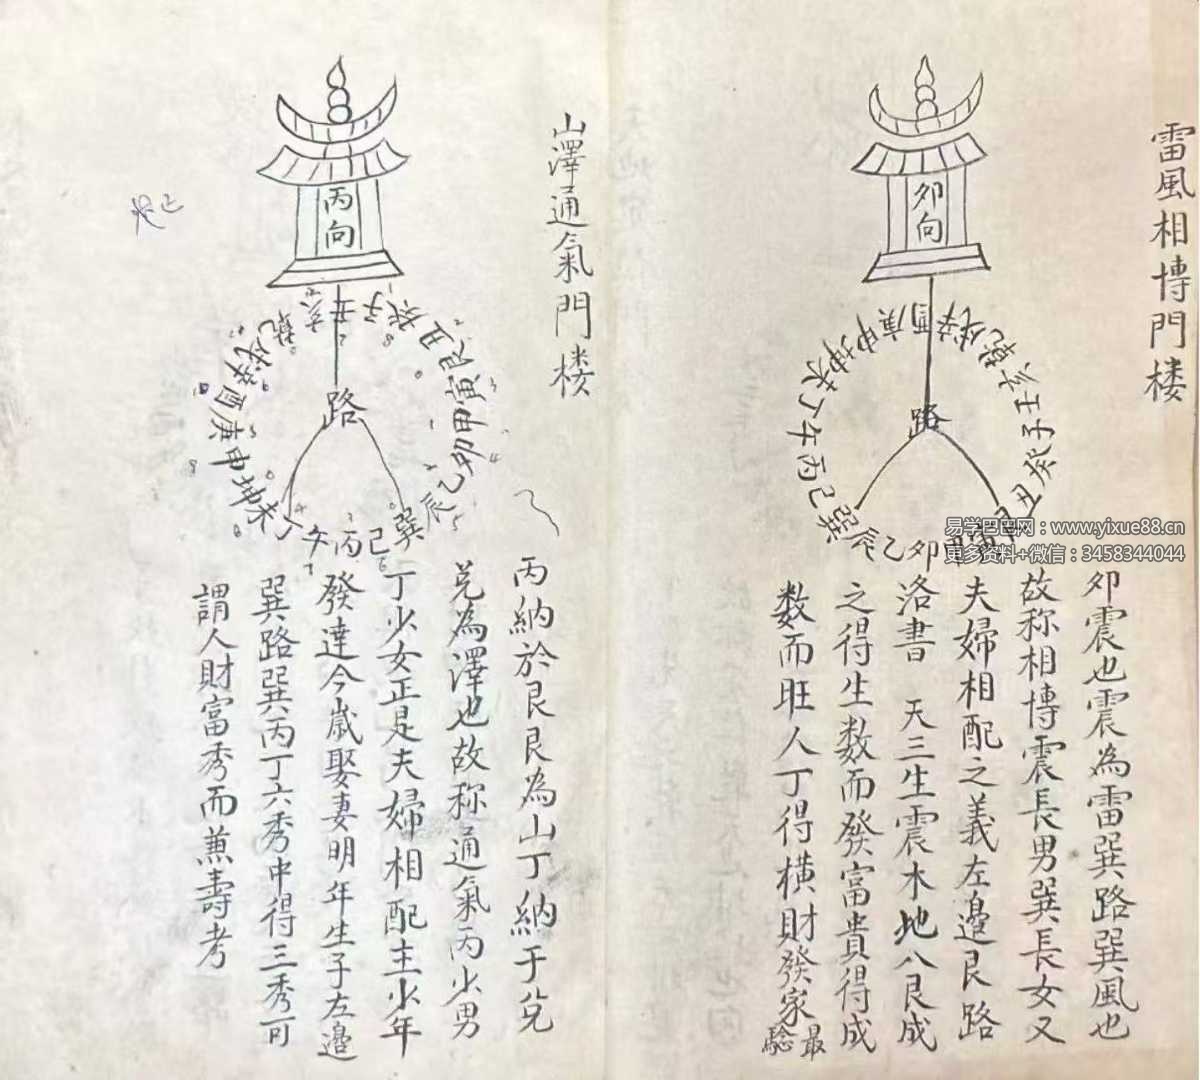 雷風相博門楼
卯向
路
卯震也震為雷巽路巽風也
故称相博震長男巽長女又
夫婦相配之義左邉艮路
洛書　天三生震木地八艮成
之得生数而發富貴得成
数而旺人丁得横財發家最驗
庚申坤未丁午丙巳巽辰乙卯甲
丑癸子壬亥乾戌辛
易学巴巴网：www.yixue88.cn
更多资料+微信：3458344044
山澤通氣門楼
丙向
路
乾戌辛酉庚申坤未丁午丙巳巽辰乙卯甲寅艮丑癸子
丙納於艮艮為山丁納于兑
兑為澤也故称通氣丙少男
丁少女正是夫婦相配主少年
發達今歲娶妻明年生子左邉
巽路巽丙丁六秀中得三秀可
謂人財富秀而蒹壽考